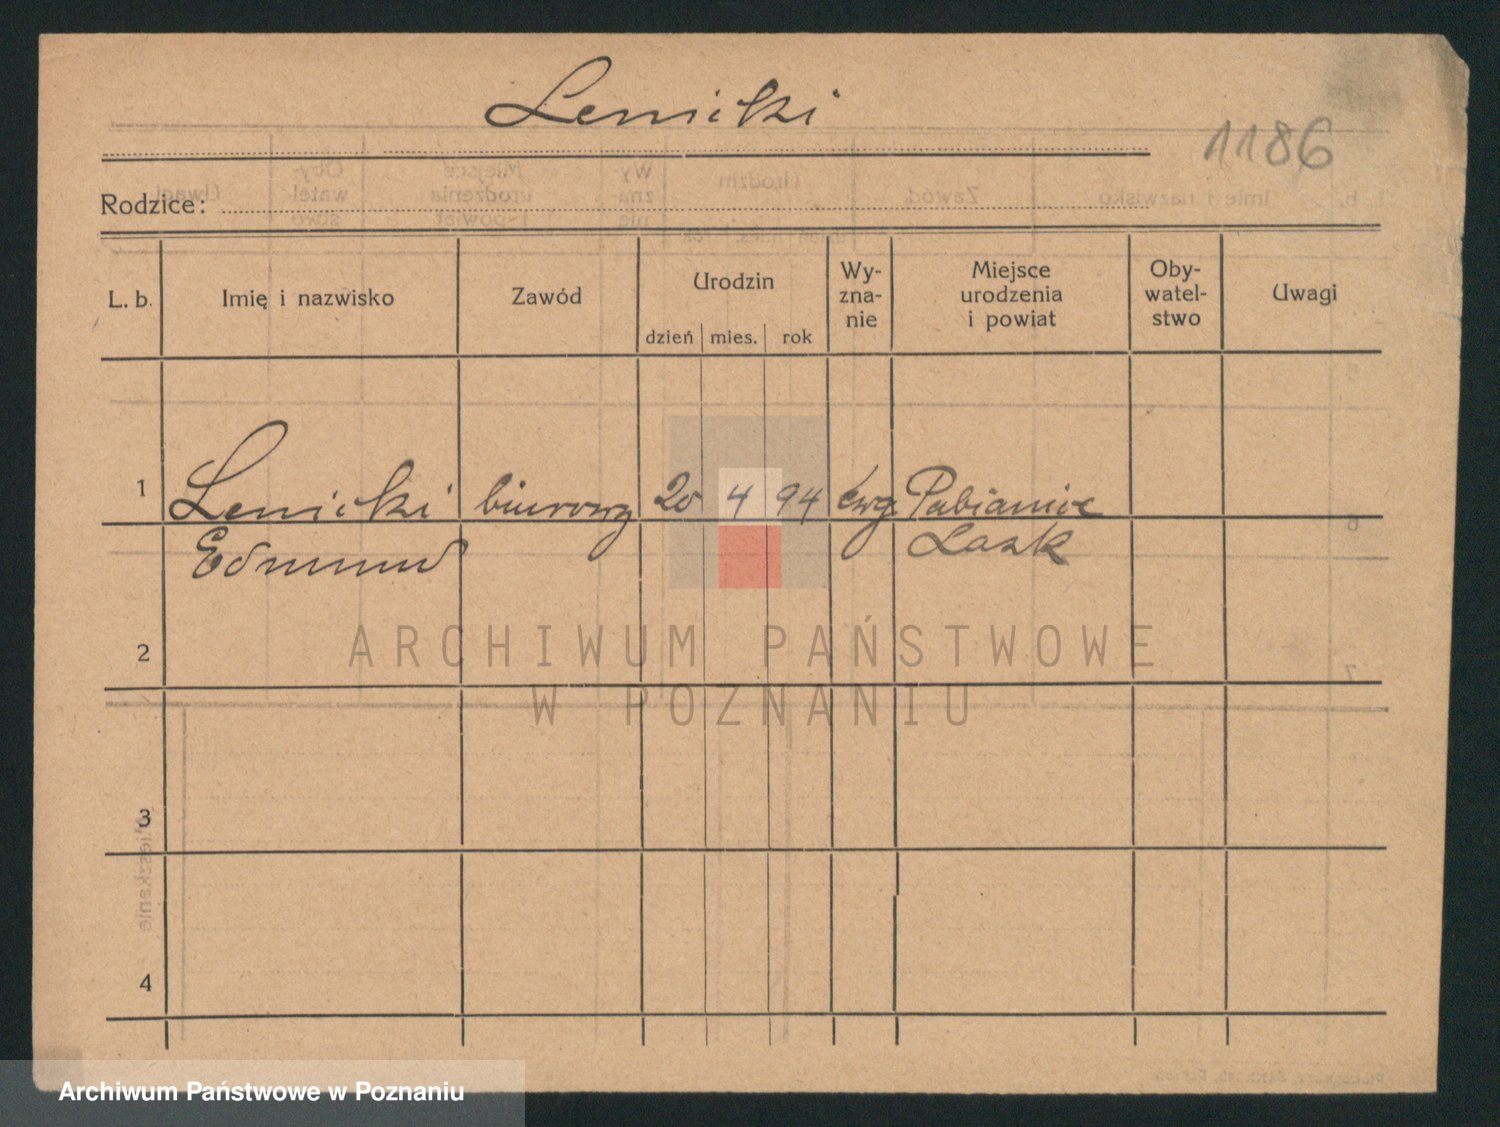 Lenicki
1186
Rodzice:
L. b. Imię i nazwisko Zawód Urodzin dzień mies. rok Wy-zna-nie Miejsce urodzenia i powiat Oby-watel-stwo Uwagi
1 Lenicki biurowy 20 4 94 ewg Pabianice
Edmund Lask
2
ARCHIWUM PAŃSTWOWE
W POZNANIU
3
4
Archiwum Państwowe w Poznaniu